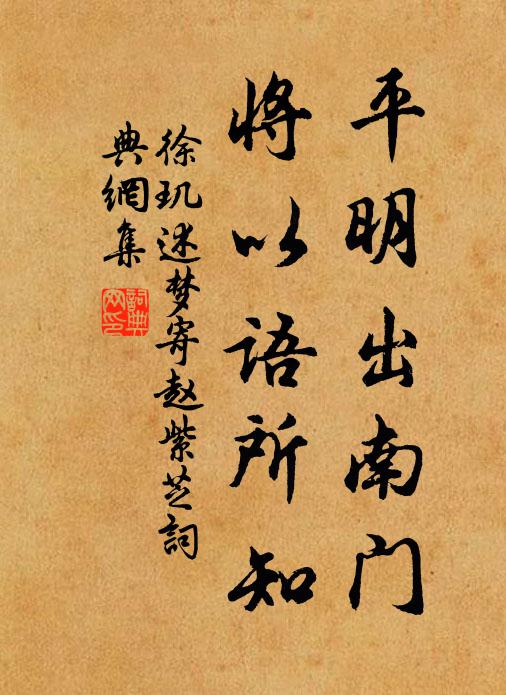 平明出南门
将以语所知
徐玑述梦寄赵紫芝詞
典網集
詞典網印